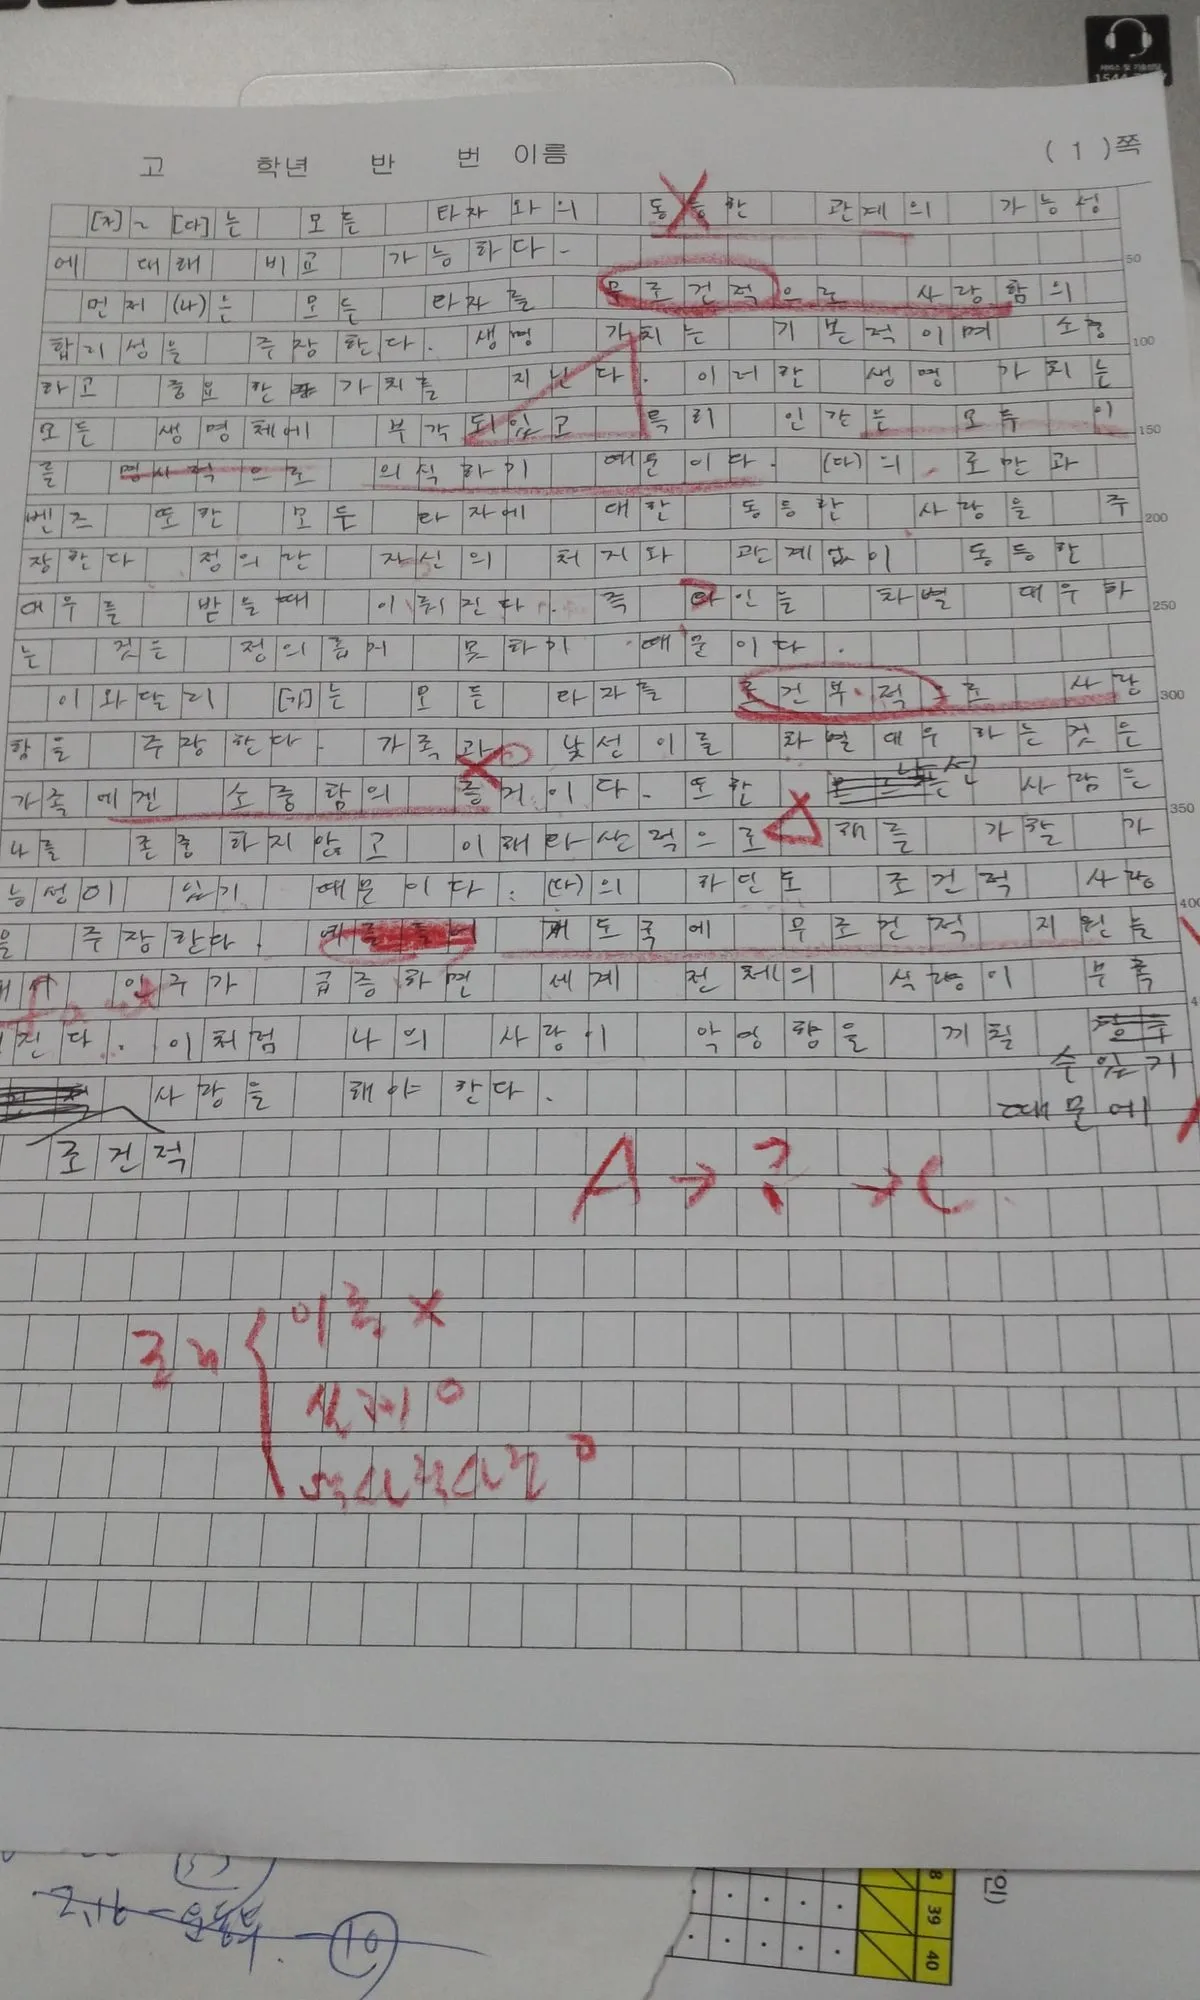 서비스 및 기술상담
고 학년 반 번 이름 ( 1 )쪽
는 모든 타자와의 동등한 관계의 가능성
에 대해 비교 가능하다. 50
먼저 (나)는 모든 타자를 무조건적으로 사랑함의
합리성을 주장한다. 생명 가치는 기본적이며 소중 100
하고 중요한 가치를 지닌다. 이러한 생명 가치는
모든 생명체에 부각되있고 특히 인간은 모두 이 150
를 의식하기 때문이다. (다)의 로만과
벤즈 또한 모든 타자에 대한 동등한 사랑을 주 200
장한다 정의란 자신의 처지와 관계없이 동등한
대우를 받을때 이뤄진다. 즉 타인을 차별 대우하 250
는 것은 정의롭지 못하기 때문이다.
이와달리 [가]는 모든 타자를 조건부적으로 사랑 300
함을 주장한다. 가족과 낯선이를 차별대우하는것은
가족에겐 소중함의 증거이다. 또한 낯선 사람은 350
나를 존중하지않고 이해타산적으로 해를 가할 가
능성이 있기 때문이다. (다)의 하딘도 조건적 사랑 400
을 주장한다. 예를들어 제도국에 무조건적 지원을
해서 인구가 급증하면 세계 전체의 식량이 부족
진다. 이처럼 나의 사랑이 악영향을 끼칠
수있기
때문에
사랑을 해야 한다.
조건적
A → ? → C
이론 X
실제 O
O
10
38 39 40